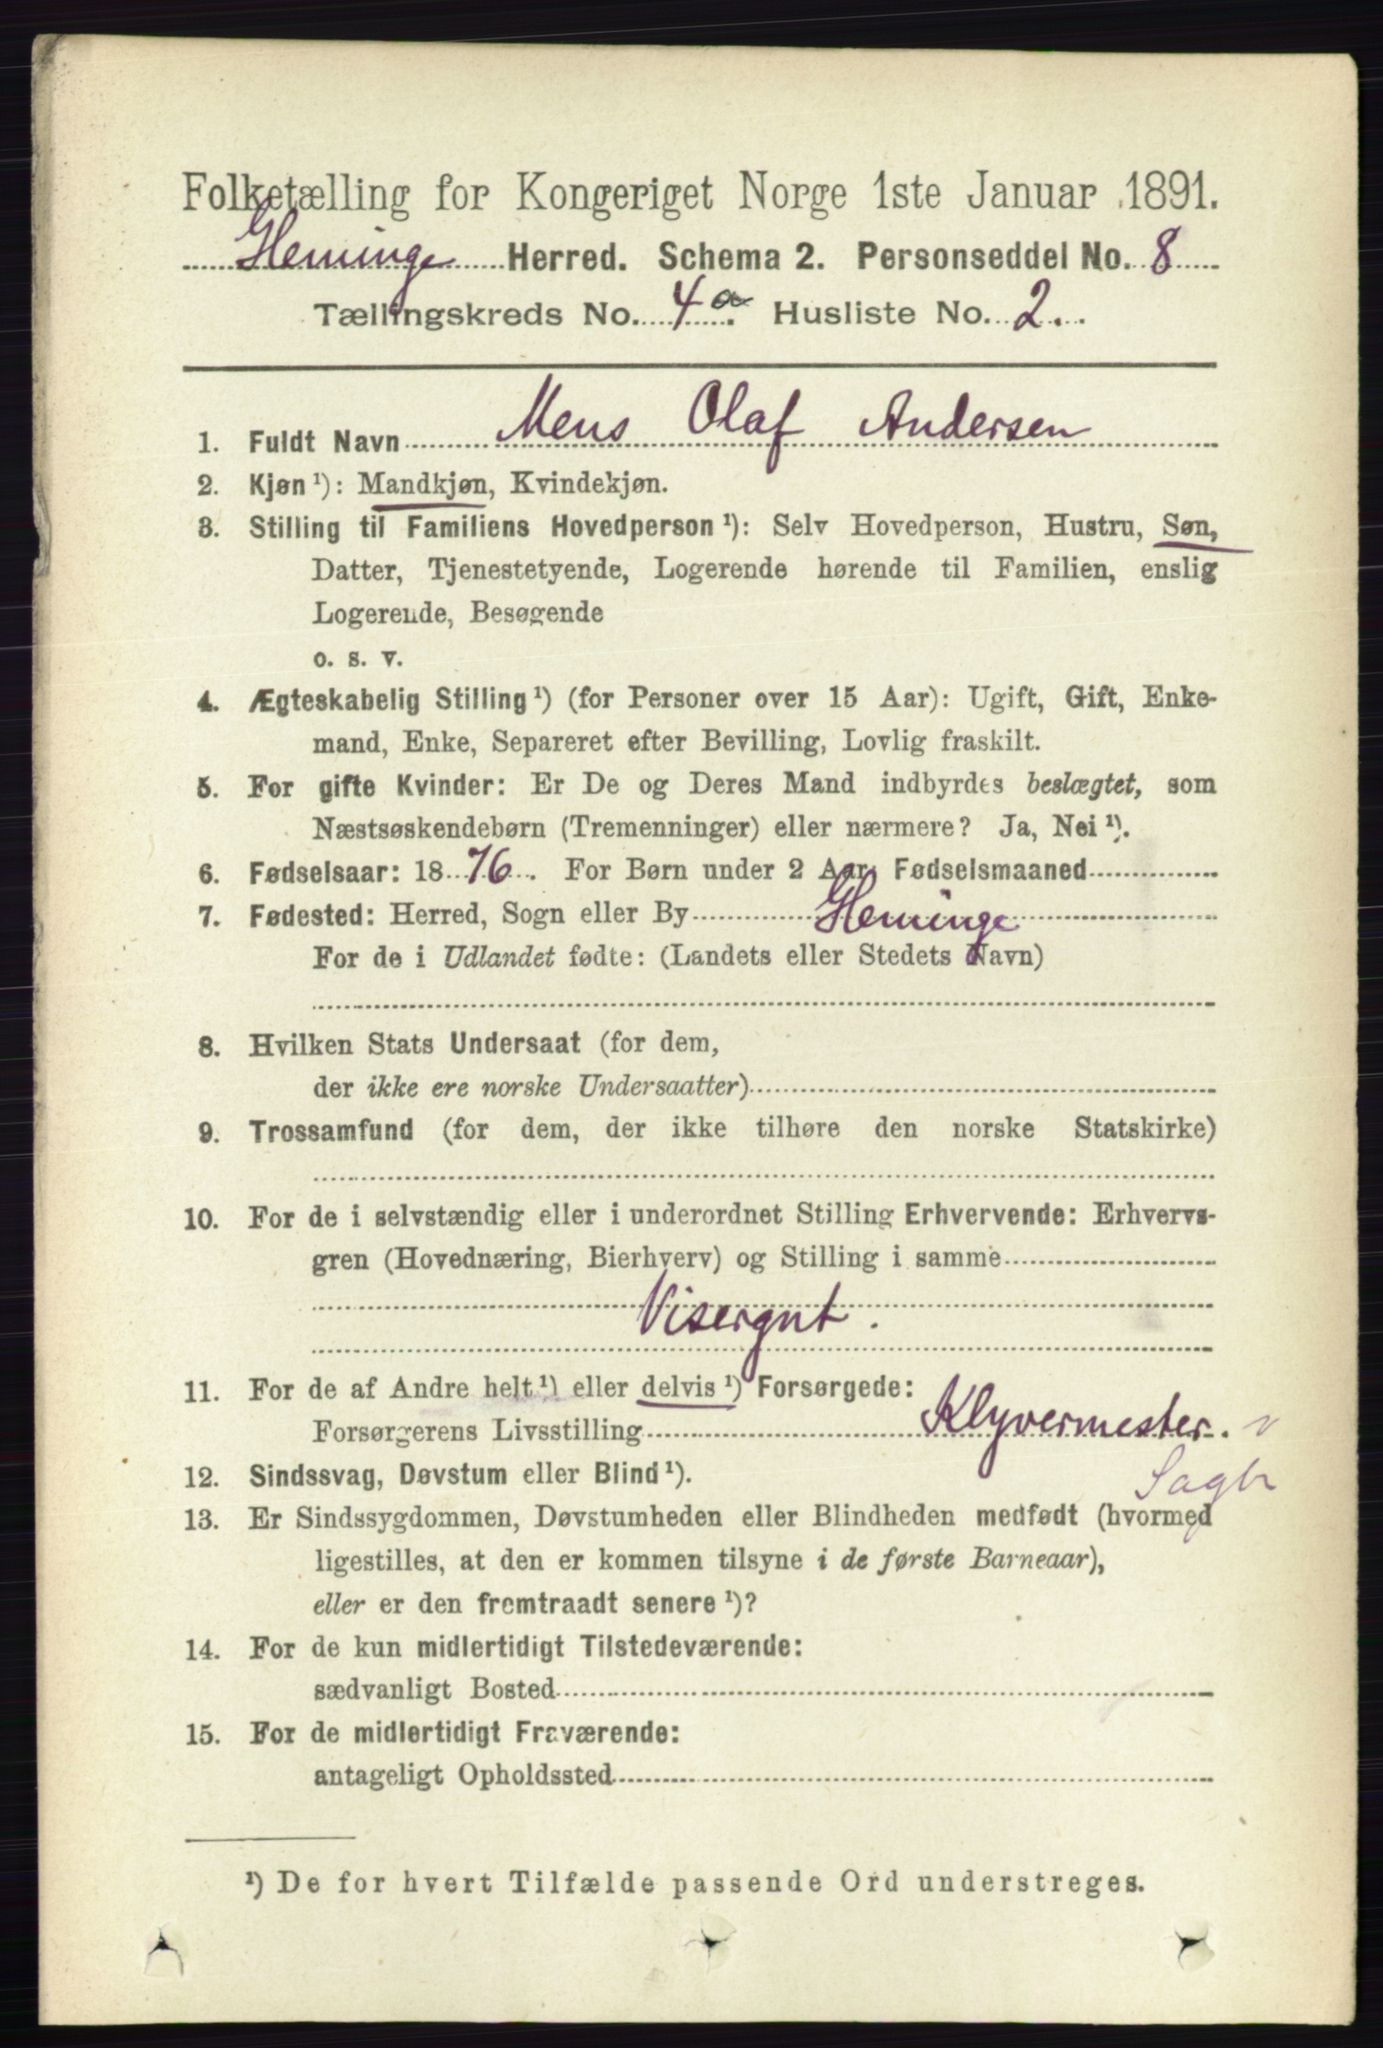 Folketælling for Kongeriget Norge 1ste Januar 1891.
Glemminge Herred. Schema 2. Personseddel No. 8
Tællingskreds No. 4 a. Husliste No. 2.
1. Fuldt Navn Mens Olaf Andersen
2. Kjøn ¹): Mandkjøn, Kvindekjøn.
3. Stilling til Familiens Hovedperson ¹): Selv Hovedperson, Hustru, Søn,
Datter, Tjenestetyende, Logerende hørende til Familien, enslig
Logerende, Besøgende
o. s. v.
4. Ægteskabelig Stilling ¹) (for Personer over 15 Aar): Ugift, Gift, Enke-
mand, Enke, Separeret efter Bevilling, Lovlig fraskilt.
5. For gifte Kvinder: Er De og Deres Mand indbyrdes beslægtet, som
Næstsøskendebørn (Tremenninger) eller nærmere? Ja, Nei ¹).
6. Fødselsaar: 1876. For Børn under 2 Aar, Fødselsmaaned
7. Fødested: Herred, Sogn eller By Glemminge
For de i Udlandet fødte: (Landets eller Stedets Navn)
8. Hvilken Stats Undersaat (for dem,
der ikke ere norske Undersaatter)
9. Trossamfund (for dem, der ikke tilhøre den norske Statskirke)
10. For de i selvstændig eller i underordnet Stilling Erhvervende: Erhvervs-
gren (Hovednæring, Bierhverv) og Stilling i samme
Visergut.
11. For de af Andre helt ¹) eller delvis ¹) Forsørgede:
Forsørgerens Livsstilling Klyvermester.
Sagbr
12. Sindssvag, Døvstum eller Blind ¹).
13. Er Sindssygdommen, Døvstumheden eller Blindheden medfødt (hvormed
ligestilles, at den er kommen tilsyne i de første Barneaar),
eller er den fremtraadt senere ¹)?
14. For de kun midlertidigt Tilstedeværende:
sædvanligt Bosted
15. For de midlertidigt Fraværende:
antageligt Opholdssted
¹) De for hvert Tilfælde passende Ord understreges.